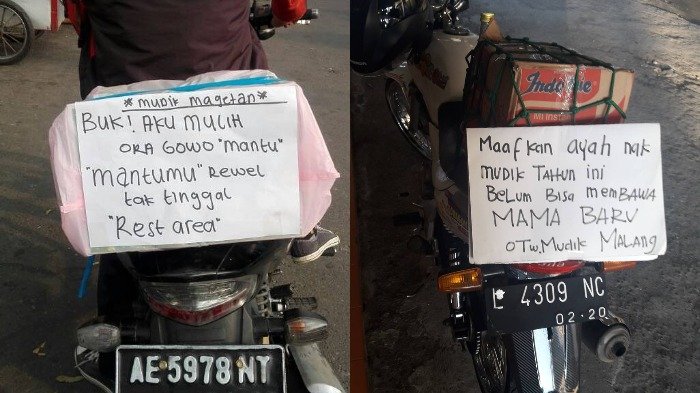 *MUDIK MAGETAN*
BUK! AKU MULIH
ORA GOWO "MANTU"
"MANTUMU" REWEL
TAK TINGGAL
"REST AREA"
AE 5978 NT
Indomie
MI INST
MAAFKAN AYAH NAK
MUDIK TAHUN INI
BELUM BISA MEMBAWA
MAMA BARU
OTW. MUDIK MALANG
L 4309 NC
02·20